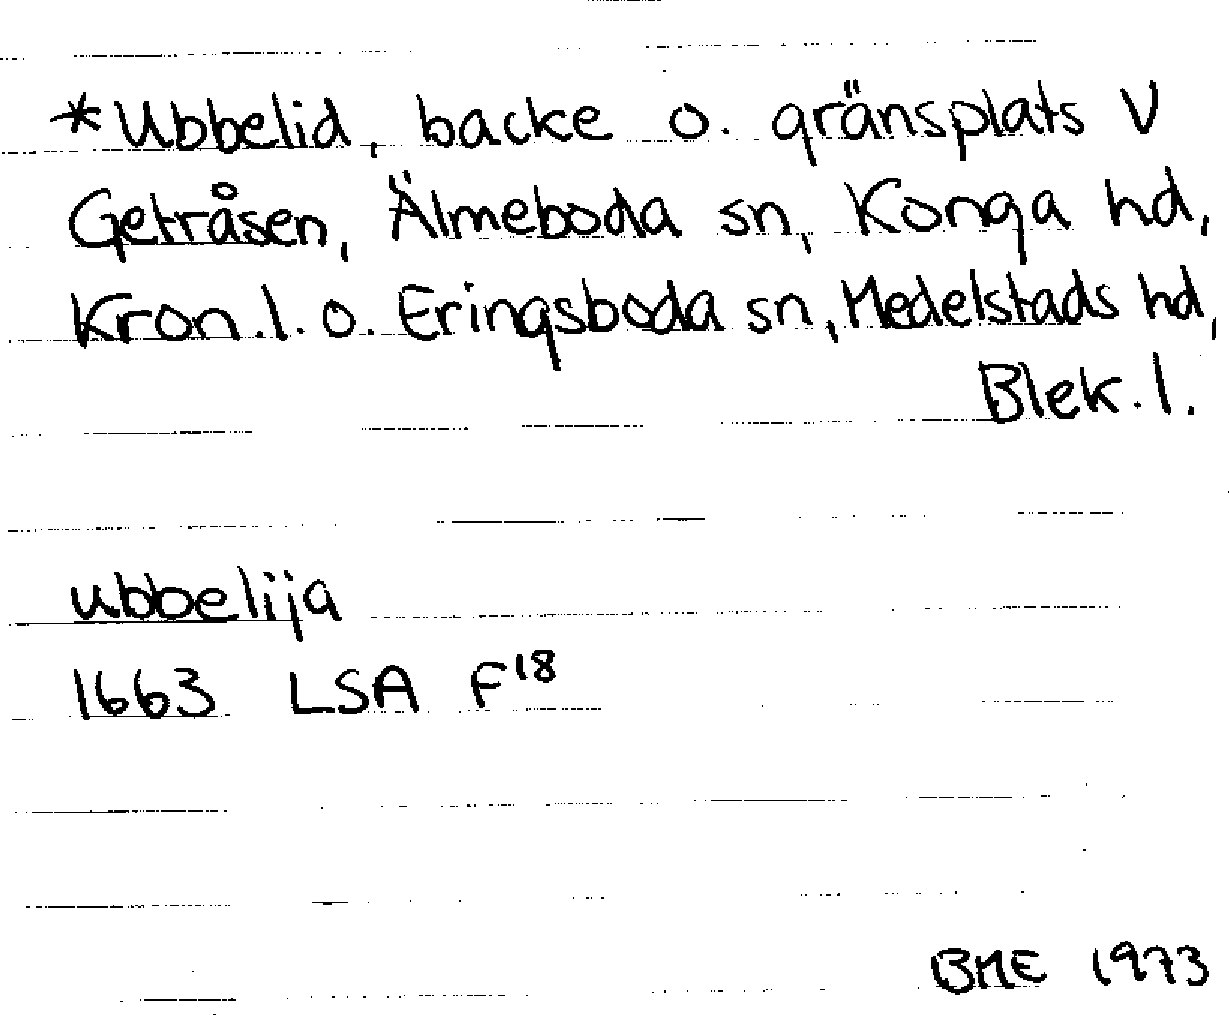 *Ubbelid, backe o. gränsplats V
Getråsen, Älmeboda sn, Konga hd,
Kron. l. o. Eringsboda sn, Medelstads hd,
Blek. l.
ubbelija
1663 LSA F18
BME 1973